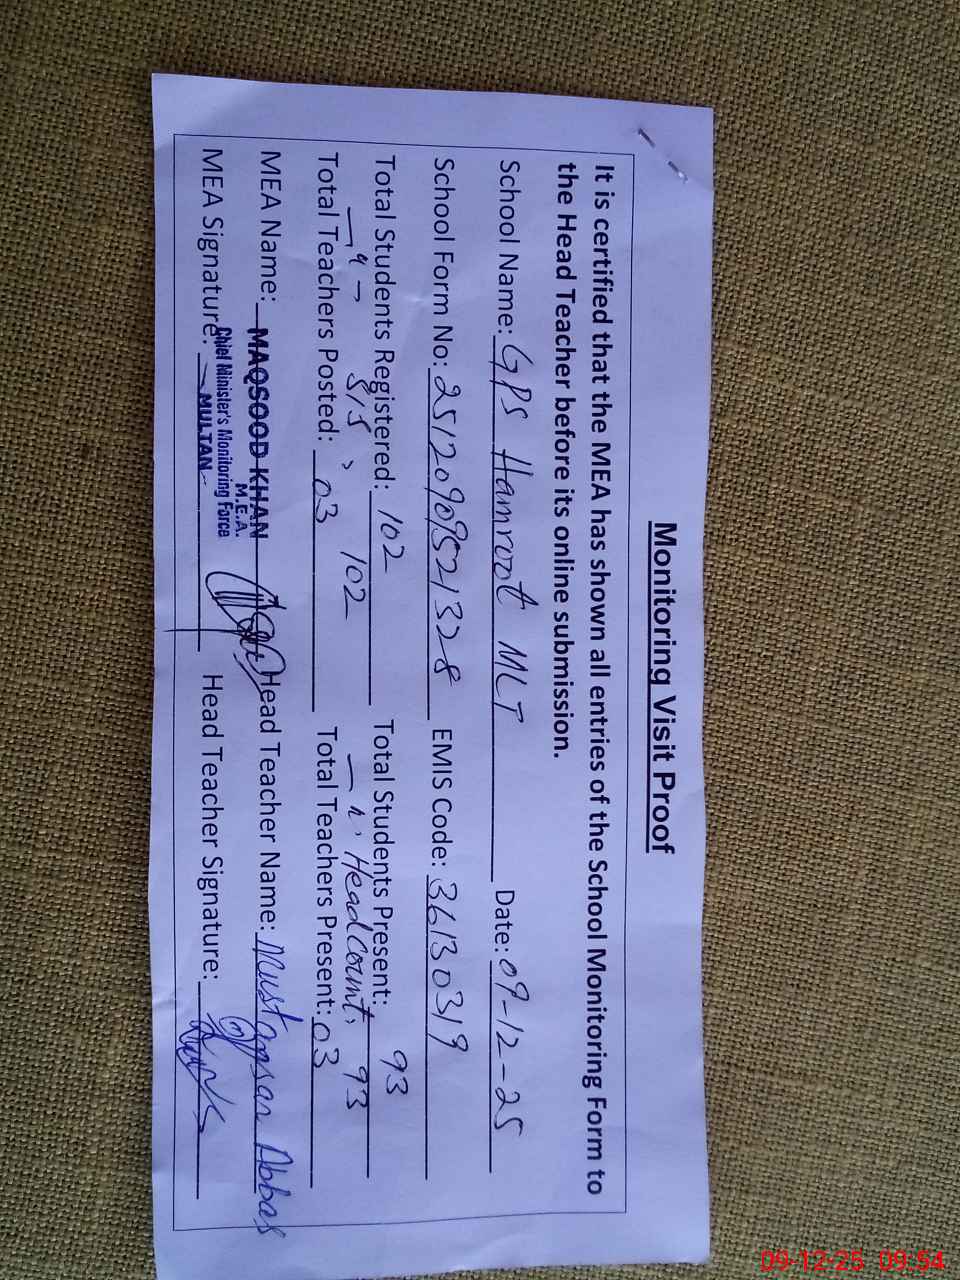 Monitoring Visit Proof
It is certified that the MEA has shown all entries of the School Monitoring Form to
the Head Teacher before its online submission.
School Name: GPS Hamroot MLT Date: 09-12-25
School Form No: 25120909521328 EMIS Code: 36130319
Total Students Registered: 102 Total Students Present: 93
SIS, 102 Headcount, 93
Total Teachers Posted: 03 Total Teachers Present: 03
MEA Name: MAQSOOD KHAN Head Teacher Name: Abbas
M.E.A.
Chief Minister's Monitoring Force
MEA Signature: MULTAN Head Teacher Signature:
09-12-25 09:54